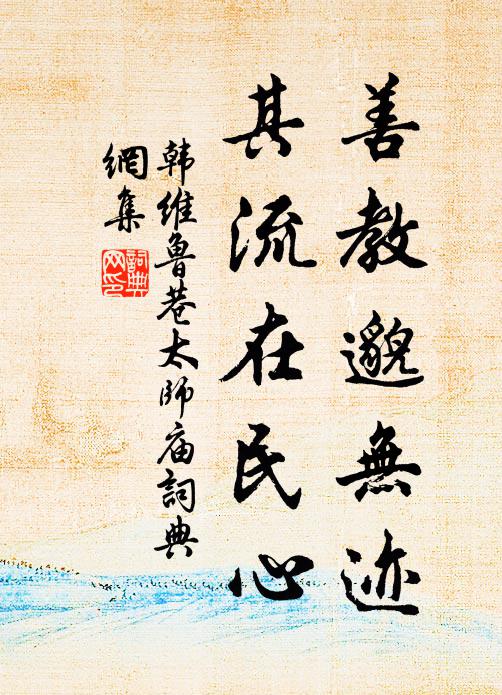 善教邈無迹
其流在民心
韩維鲁巷太師庙詞典
網集
詞典
网印